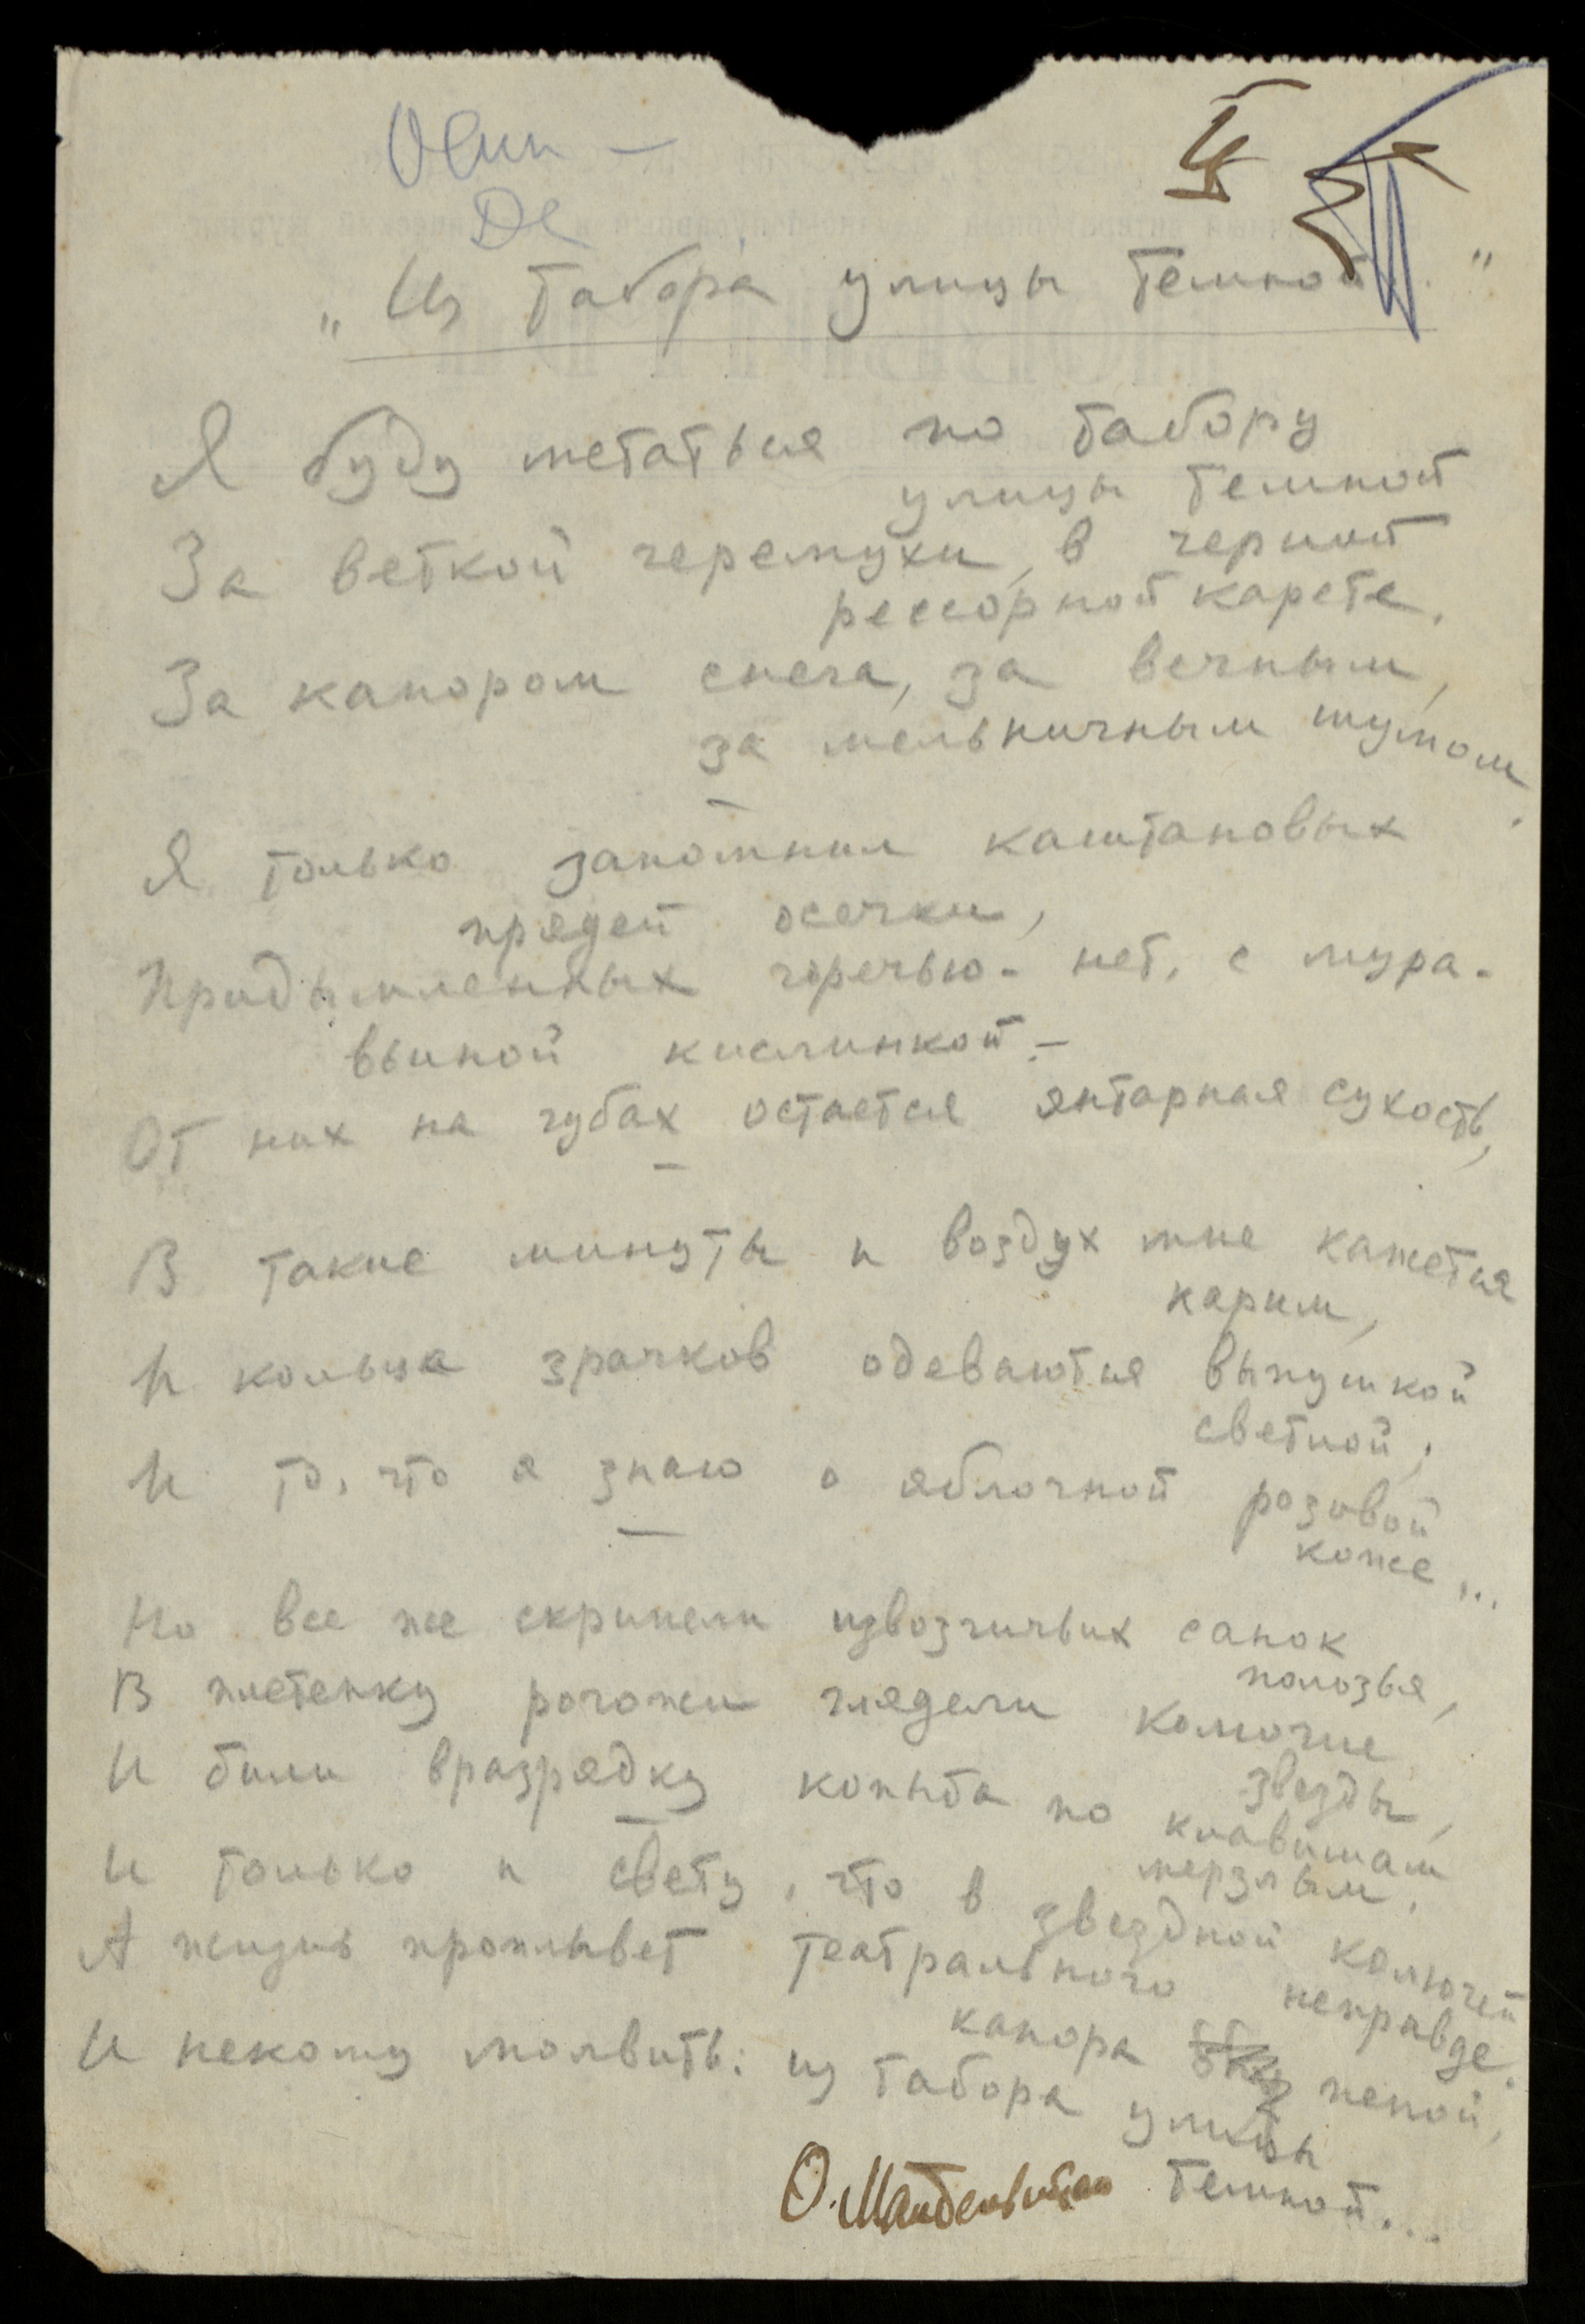 Осип —
„Из табора улицы темной..."
Я буду метаться по табору
улицы темной
За веткой черемухи, в черной
рессорной карете,
За капором снега, за вечным,
за мельничным шумом.
Я только запомнил каштановых
прядей осечки,
Придымленных горечью - нет, с мура-
вьиной кислинкой. —
От них на губах остается янтарная сухость,
В такие минуты и воздух мне кажется
карим,
И кольца зрачков одеваются выпушкой
светлой;
И то, что я знаю о яблочной розовой
коже...
Но все же скрипели извозчичьих санок
полозья,
В плетенку рогожи глядели колючие
звезды,
И били вразрядку копыта по клавишам
мерзлым.
И только и свету, что в звездной колючей
неправде.
А жизнь проплывет театрального
капора пеной,
И некому молвить: из табора улицы
темной...
О. Мандельштам